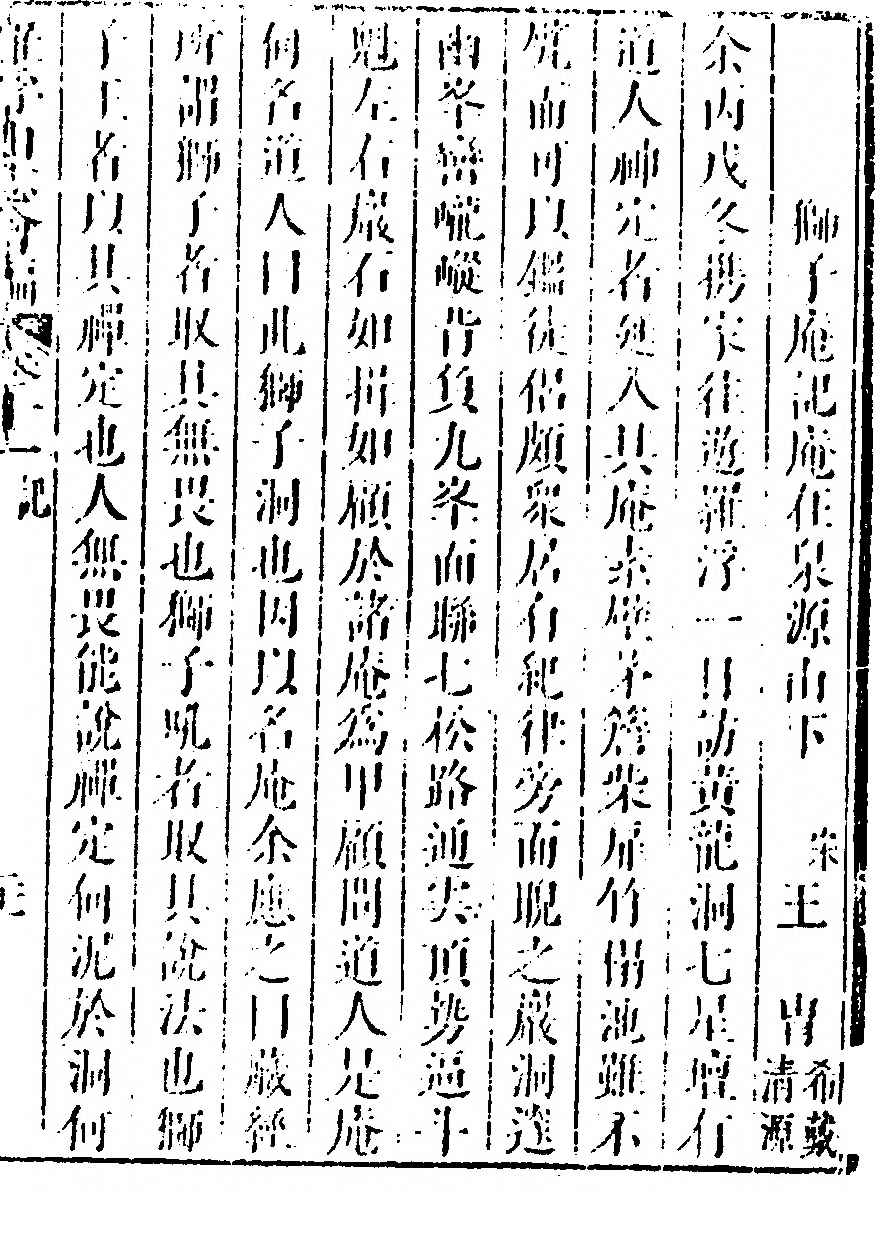 獅子庵記庵在泉源山下 宋王 胄希戴清源
余丙戌冬攜家往遊羅浮一日訪黃龍洞七星壇有
道人禪定者延入其庵素壁茅簷柴扉竹僧池雖不
荒而可以鑑徒侶頗眾居有紀律旁而睨之巖洞邃
幽峯巒巃嵸背負九峯而聯七松路通尖頂勢逼斗
魁左右巖石如拱如顧於諸庵為甲顧問道人是庵
何名道人曰此獅子洞也因以名庵余應之曰藏經
所謂獅子者取其無畏也獅子吼者取其說法也獅
子王者以其禪定也人無畏能說禪定何泥於洞何
記